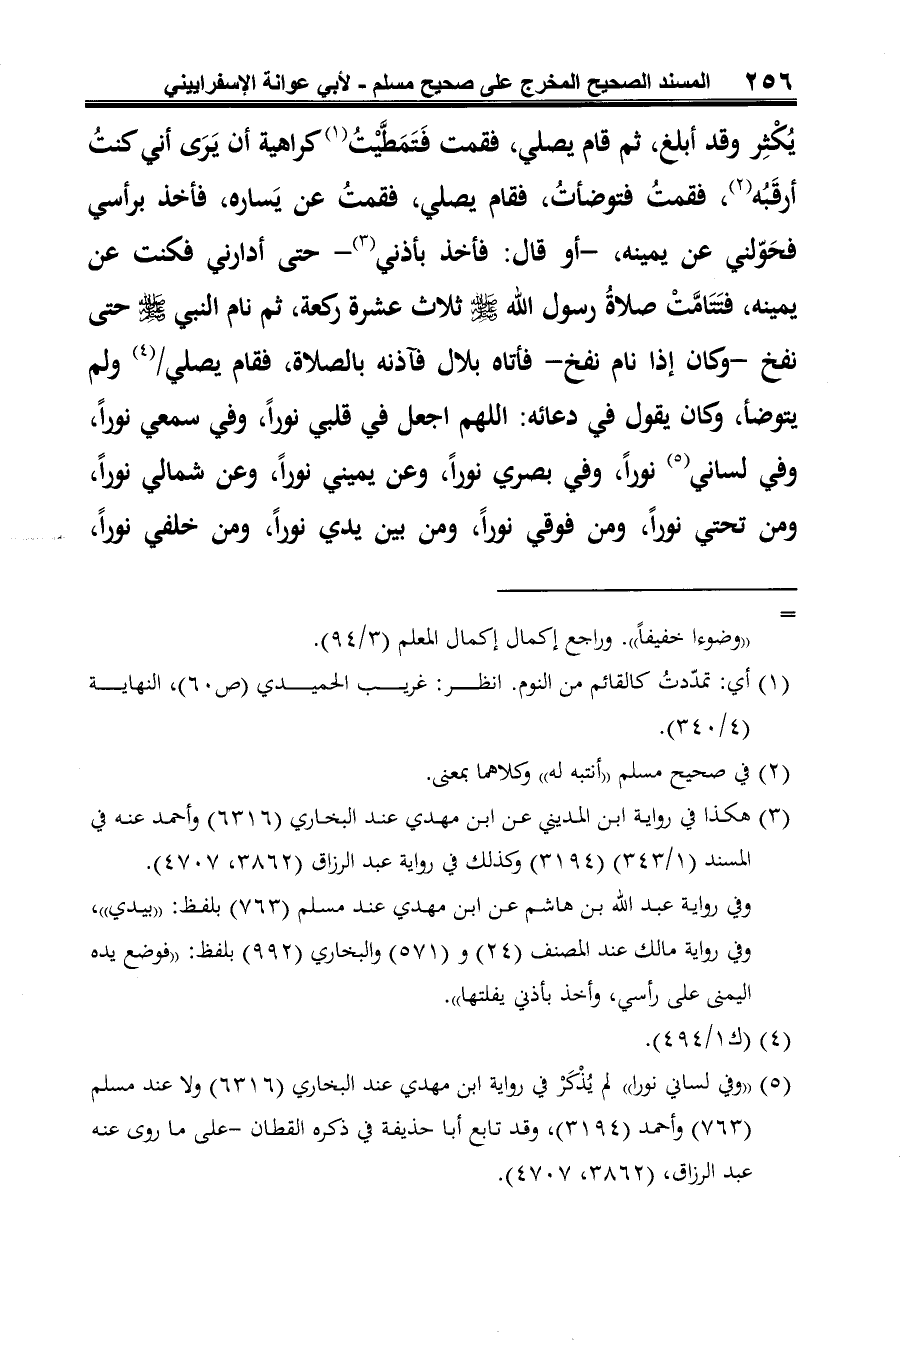 ٢٥٦ المسند الصحيح المخرج على صحيح مسلم - لأبي عوانة الإسفراييني
يُكْثِر وقد أبلغ، ثم قام يصلي، فقمت فَتَمَطَّيْتُ(١) كراهية أن يَرَى أني كنتُ
أرقَبُه(٢)، فقمتُ فتوضأتُ، فقام يصلي، فقمتُ عن يَساره، فأخذ برأسي
فحَوّلني عن يمينه، –أو قال: فأخذ بأذني(٣)– حتى أدارني فكنت عن
يمينه، فتَتَامَّتْ صلاةُ رسول الله ﷺ ثلاث عشرة ركعة، ثم نام النبي ﷺ حتى
نفخ –وكان إذا نام نفخ– فأتاه بلال فآذنه بالصلاة، فقام يصلي/(٤) ولم
يتوضأ، وكان يقول في دعائه: اللهم اجعل في قلبي نوراً، وفي سمعي نوراً،
وفي لساني(٥) نوراً، وفي بصري نوراً، وعن يميني نوراً، وعن شمالي نوراً،
ومن تحتي نوراً، ومن فوقي نوراً، ومن بين يدي نوراً، ومن خلفي نوراً،
=
«وضوءا خفيفاً». وراجع إكمال إكمال المعلم (٩٤/٣).
(١) أي: تمدّدتُ كالقائم من النوم. انظر: غريب الحميدي (ص٦٠)، النهاية
(٣٤٠/٤).
(٢) في صحيح مسلم «أنتبه له» وكلاهما بمعنى.
(٣) هكذا في رواية ابن المديني عن ابن مهدي عند البخاري (٦٣١٦) وأحمد عنه في
المسند (٣٤٣/١) (٣١٩٤) وكذلك في رواية عبد الرزاق (٣٨٦٢، ٤٧٠٧).
وفي رواية عبد الله بن هاشم عن ابن مهدي عند مسلم (٧٦٣) بلفظ: «بيدي»،
وفي رواية مالك عند المصنف (٢٤) و (٥٧١) والبخاري (٩٩٢) بلفظ: «فوضع يده
اليمنى على رأسي، وأخذ بأذني يفلتها».
(٤) (ك٤٩٤/١).
(٥) «وفي لساني نورا» لم يُذْكَرْ في رواية ابن مهدي عند البخاري (٦٣١٦) ولا عند مسلم
(٧٦٣) وأحمد (٣١٩٤)، وقد تابع أبا حذيفة في ذكره القطان –على ما روى عنه
عبد الرزاق، (٣٨٦٢، ٤٧٠٧).